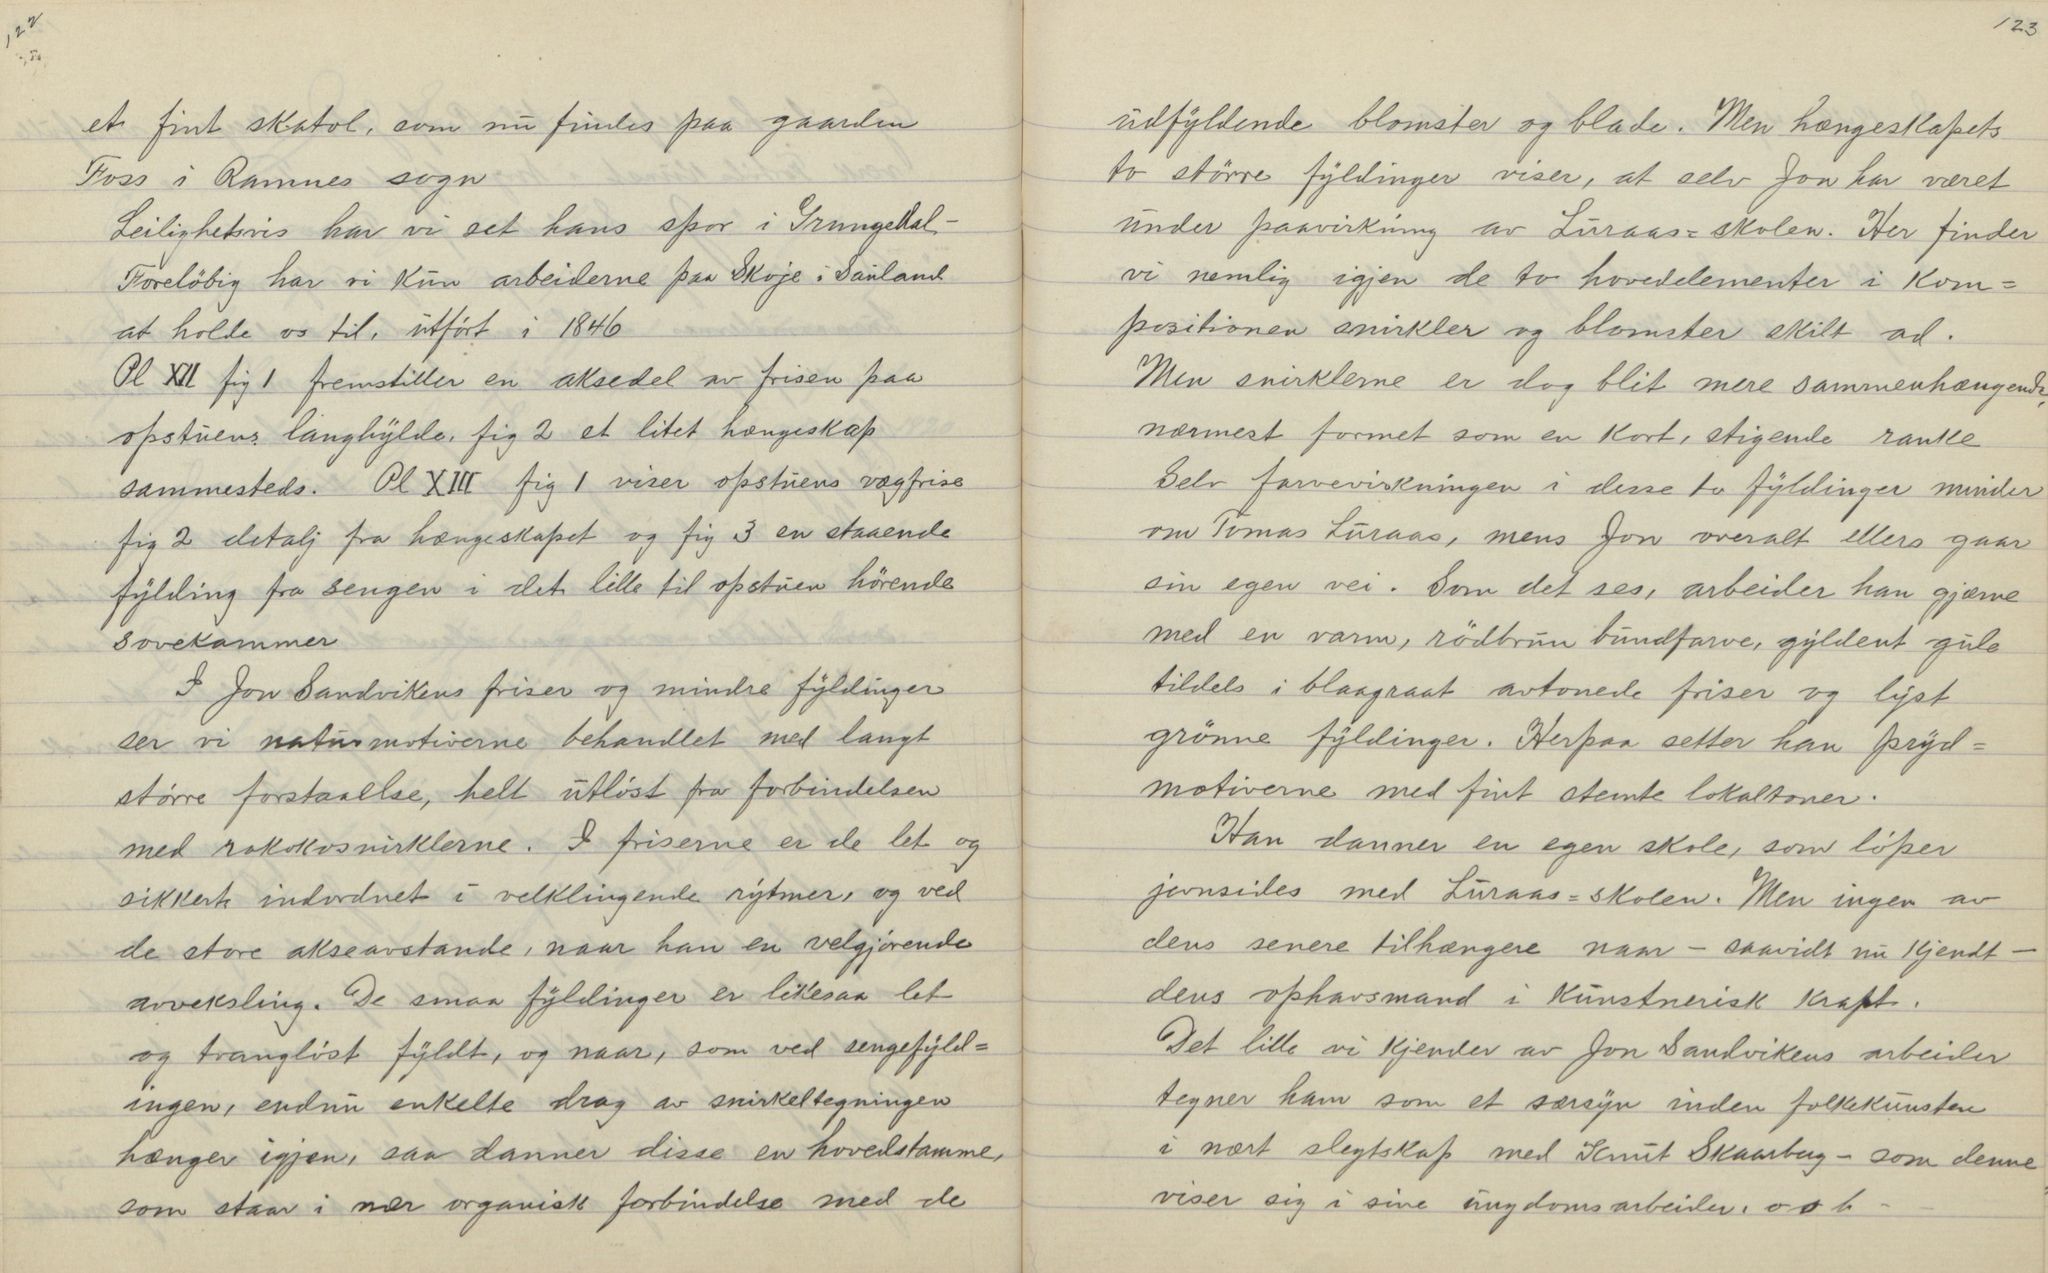 122
et fint skatol, som nu findes paa gaarden
Foss i Ramnes sogn
Leilighetsvis har vi set hans spor i Grungedal-
Foreløbig har vi kun arbeiderne paa Skoje i Sauland
at holde os til, utført i 1846
Pl XII fig 1 fremstiller en aksedel av frisen paa
opstuens langhylde, fig 2 et litet hængeskap
sammesteds. Pl XIII fig 1 viser opstuens vægfrise
fig 2 detalj fra hængeskapet og fig 3 en staaende
fylding fra sengen i det lille til opstuen hörende
sovekammer
I Jon Sandvikens friser og mindre fyldinger
ser vi naturmotiverne behandlet med langt
större forstaaelse, helt utlöst fra forbindelsen
med rokokosnirklerne. I friserne er de let og
sikkert indordnet i velklingende rytmer, og ved
de store akseavstande, naar han en velgjörende
avveksling. De smaa fyldinger er likesaa let
og tvanglöst fyldt, og naar, som ved sengefyld=
ingen, endnu enkelte drag av snirkeltegningen
hænger igjen, saa danner disse en hovedstamme,
som staar i nær organisk forbindelse med de
123
udfyldende blomster og blade. Men hængeskapets
to större fyldinger viser, at selv Jon har været
under paavirkning av Luraas=skolen. Her finder
vi nemlig igjen de to hovedelementer i kom=
positionen snirkler og blomster skilt ad.
Men snirklerne er dog blit mere sammenhængende,
nærmest formet som en kort, stigende ranke
Selv farvevirkningen i disse to fyldinger minder
om Tomas Luraas, mens Jon overalt ellers gaar
sin egen vei. Som det ses, arbeider han gjærne
med en varm, rödbrun bundfarve, gyldent gule
tildels i blaagraat avtonede friser og lyst
grönne fyldinger. Herpaa setter han pryd=
motiverne med fint stemte lokaltoner.
Han danner en egen skole, som löper
jevnsides med Luraas=skolen. Men ingen av
dens senere tilhængere naar - saavidt nu kjendt -
dens ophavsmand i kunstnerisk kraft.
Det lille vi kjender av Jon Sandvikens arbeider
tegner ham som et særsyn inden folkekunsten
i nært slegtskap med Knut Skaarberg - som denne
viser sig i sine ungdomsarbeider. o s b -